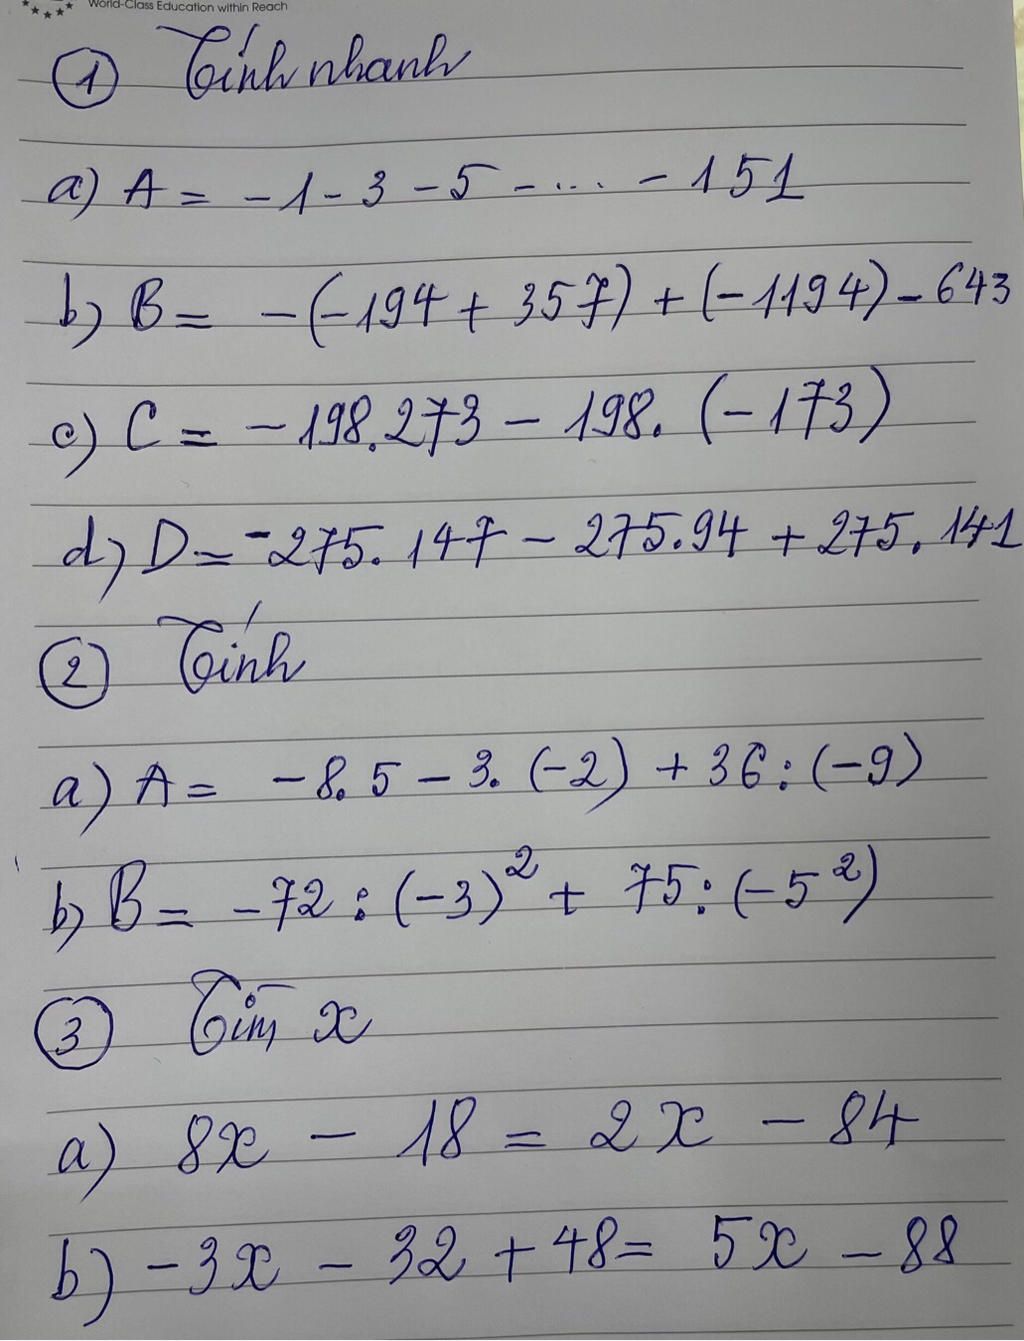 World-Class Education within Reach
① Tính nhanh
a) A = -1 - 3 - 5 - ... - 151
b) B = -(-194 + 357) + (-1194) - 643
c) C = -198.273 - 198. (-173)
d) D = -275. 147 - 275.94 + 275. 141
② Tính
a) A = -8. 5 - 3. (-2) + 36 : (-9)
b) B = -72 : (-3)² + 75 : (-5²)
③ Tìm x
a) 8x - 18 = 2x - 84
b) -3x - 32 + 48 = 5x - 88